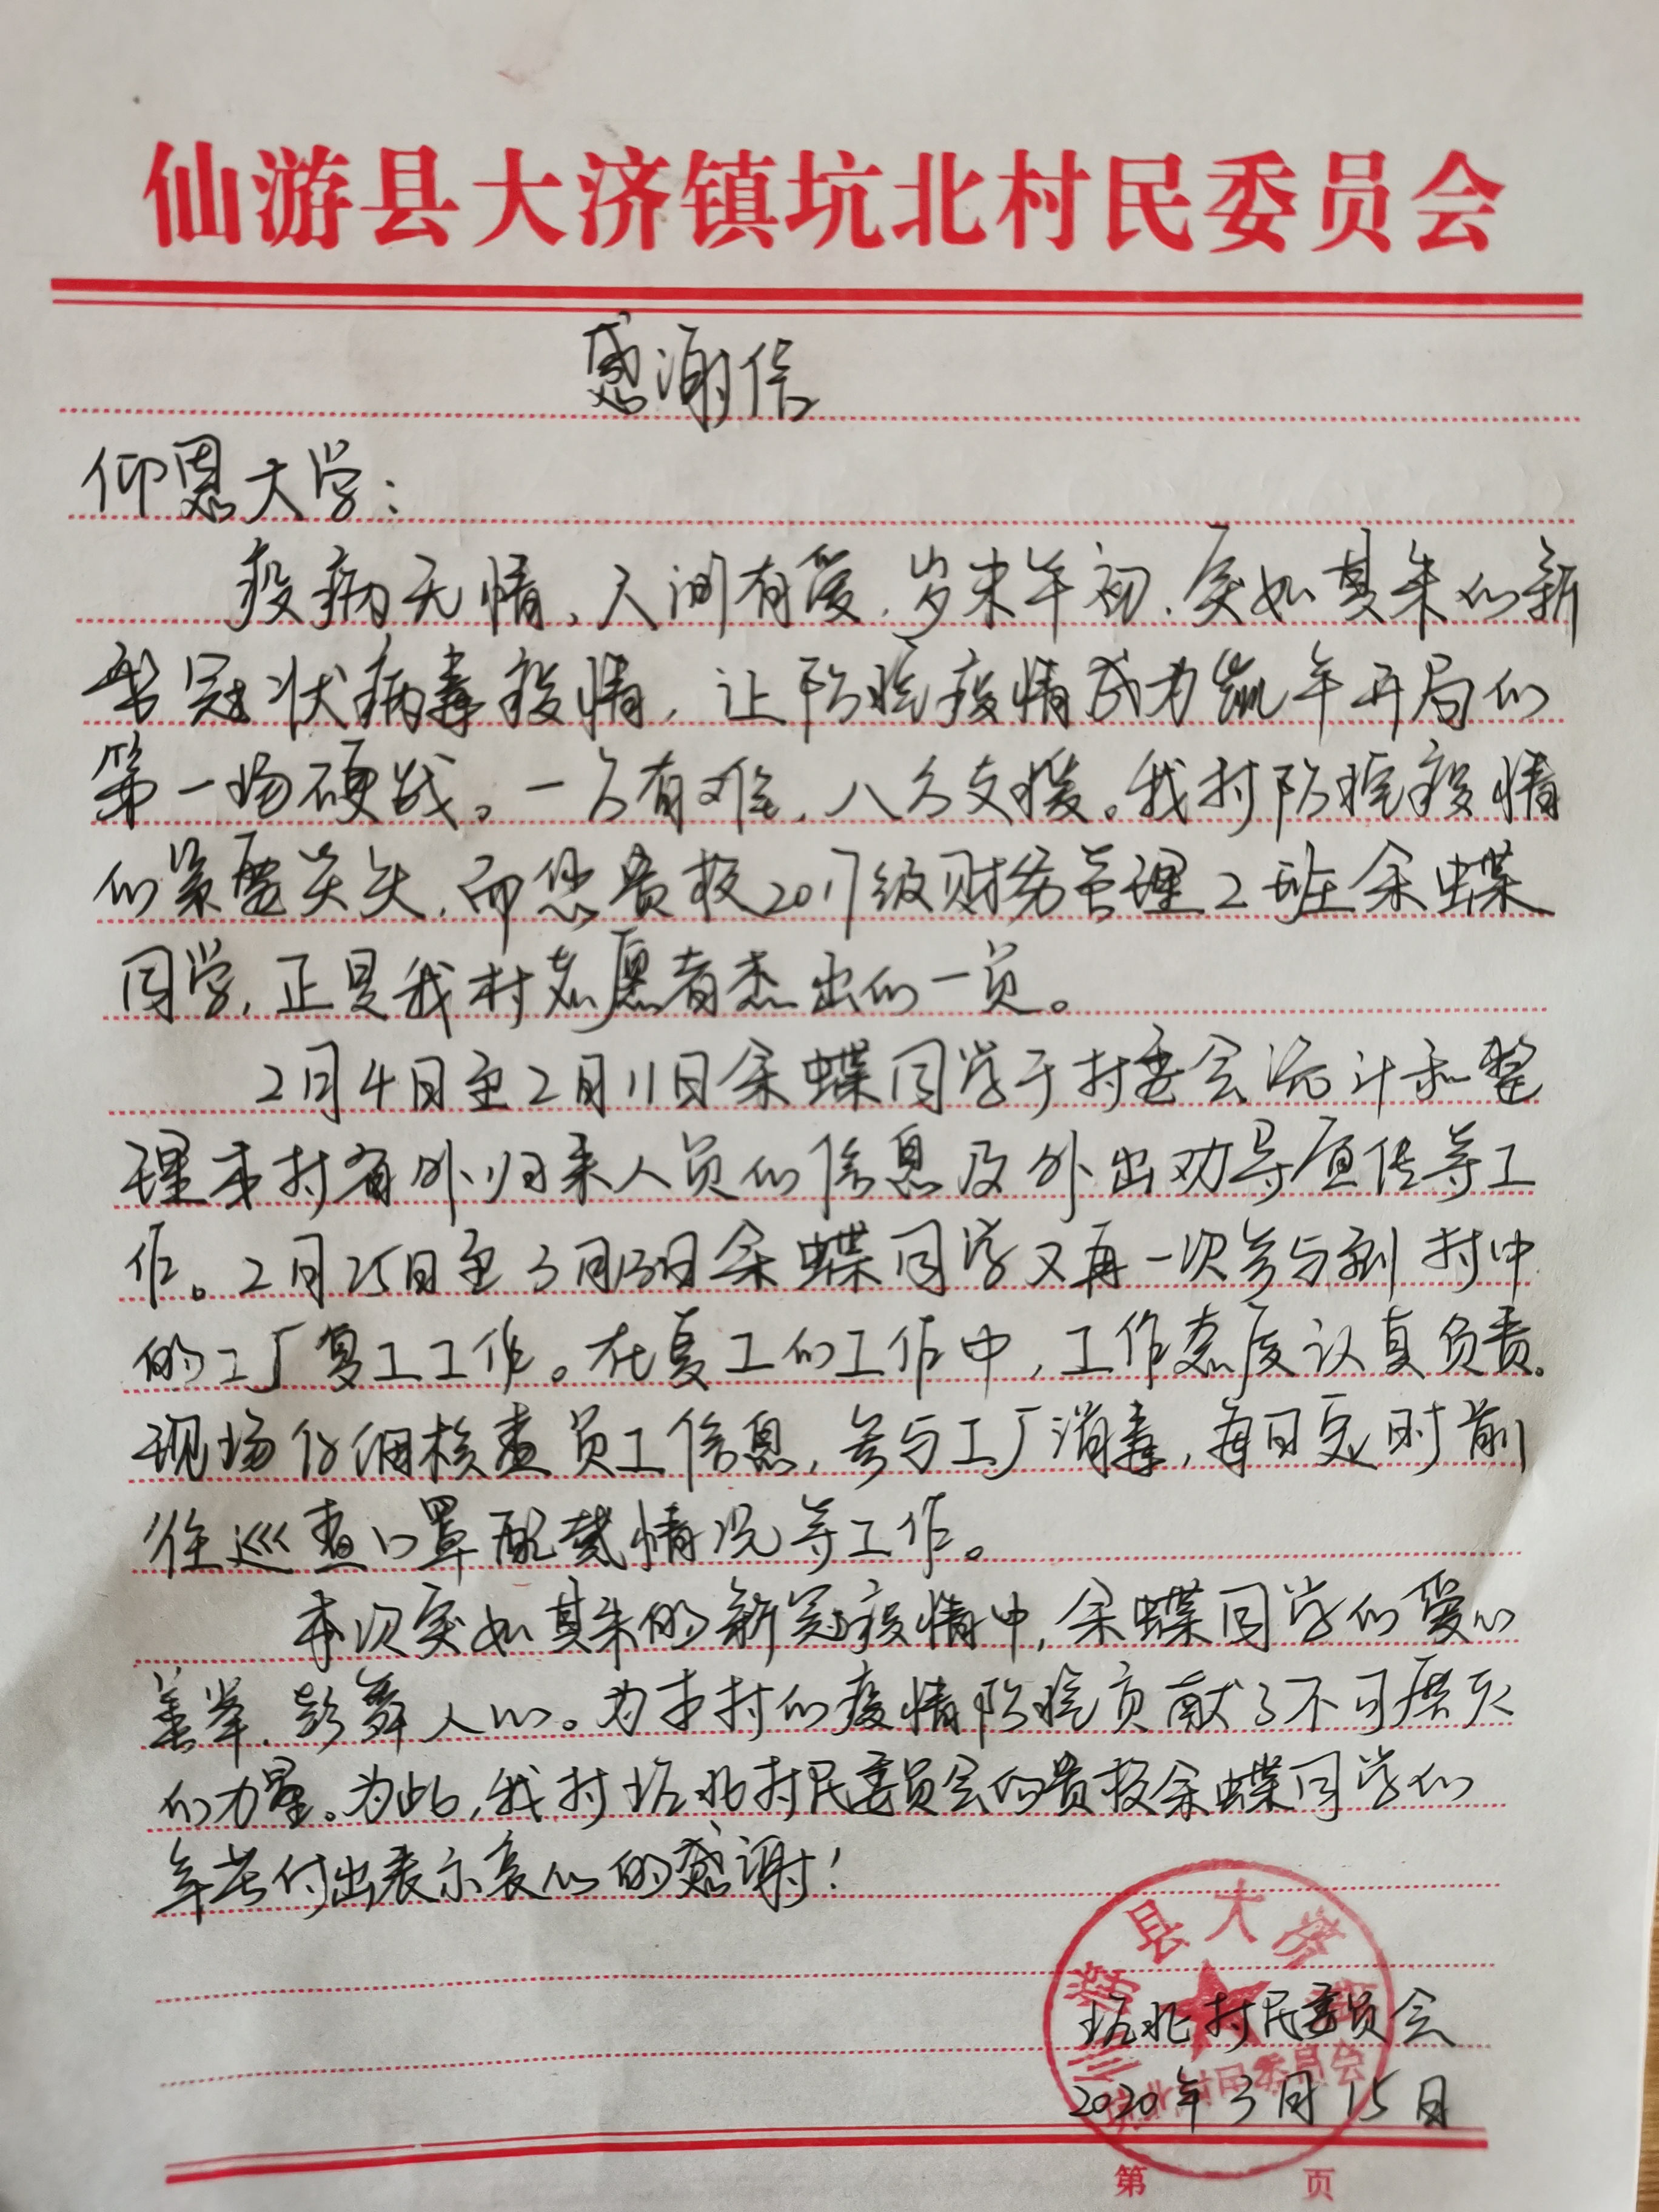 仙游县大济镇坑北村民委员会
感谢信
仰恩大学：
疫病无情，人间有爱，岁末年初，突如其来的新
型冠状病毒疫情，让防控疫情成为鼠年开局的
第一场硬战。一方有难，八方支援。我村防控疫情
的紧要关头，而您贵校2017级财务管理2班余蝶
同学，正是我村志愿者杰出的一员。
2月4日至2月11日余蝶同学于村委会统计和整
理本村省外归来人员的信息及外出劝导宣传等工
作。2月25日至3月13日余蝶同学又再一次参与到村中
的工厂复工工作。在复工的工作中，工作态度认真负责。
现场仔细核查员工信息，参与工厂消毒，每日定时前
往巡查口罩配戴情况等工作。
本次突如其来的新冠疫情中，余蝶同学的爱心
善举，鼓舞人心。为本村的疫情防控贡献了不可磨灭
的力量。为此，我村坑北村民委员会向贵校余蝶同学的
辛苦付出表示衷心的感谢！
游县大济
坑北村民委员会
2020年3月15日
第 页